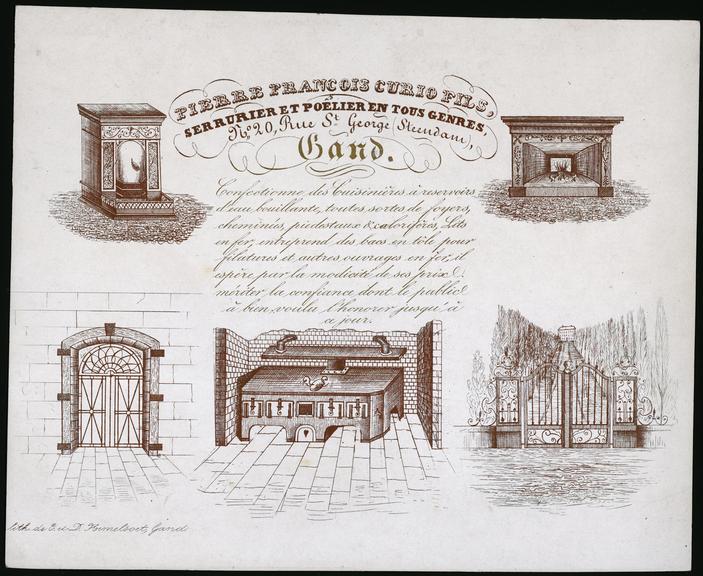 PIERRE FRANCOIS CURIO FILS,
SERRURIER ET POËLIER EN TOUS GENRES,
Nº 20, Rue St George Steendam,
Gand.
Confectionne des Cuisinières à réservoirs
d'eau bouillante, toutes sortes de foyers,
cheminées, piedesteaux & calorifères, Lits
en fer, entreprend des bacs en tôle pour
filatures et autres ouvrages en fer, il
espère par la modicité de ses prix
mériter la confiance dont le public
à bien voulu l'honorer jusqu'à
a jour.
lith. de D. Hemelsoet, Gand